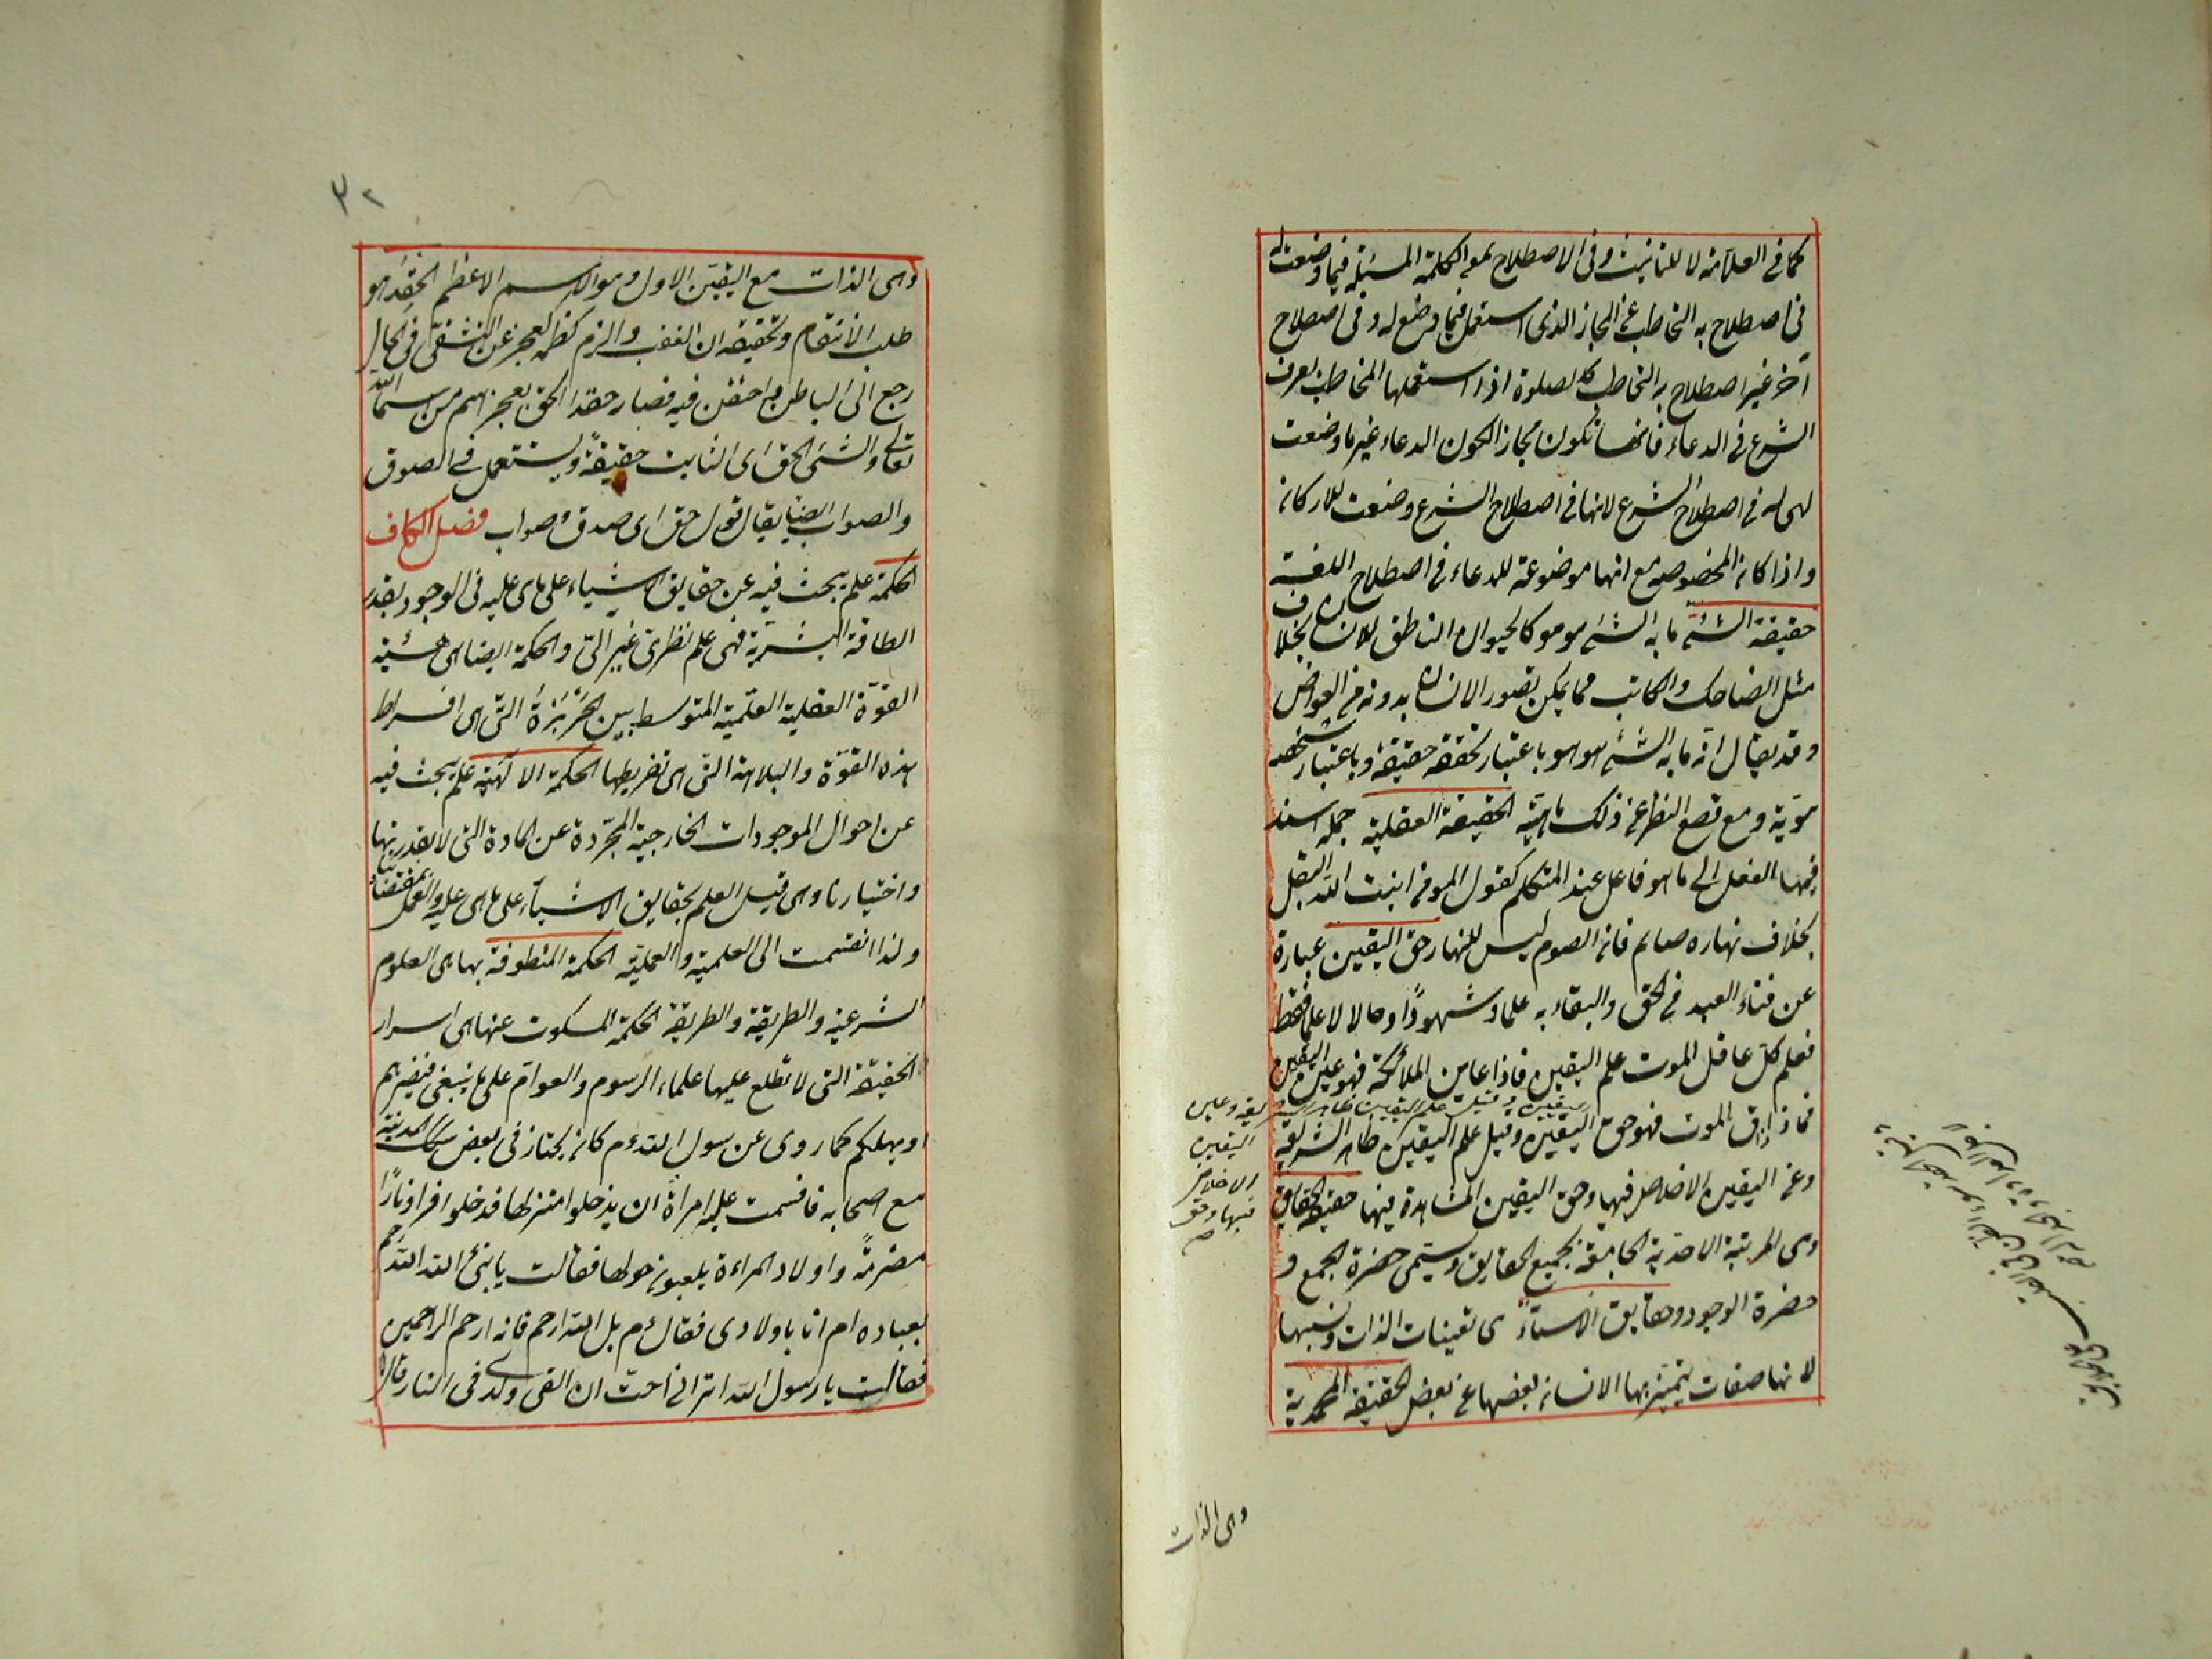 كما في العلامة لا للتانيث وفي الاصطلاح هي الكلمة المستعملة فيما وضعت له
في اصطلاح به التخاطب عن المجاز الذي استعمل فيما وضع له وفي اصطلاح
آخر غير اصطلاح به التخاطب كالصلوة اذا استعملها المخاطب بعرف
الشرع في الدعاء فانها تكون مجازا لكون الدعاء غير ما وضعت
هي له في اصطلاح الشرع لانها في اصطلاح الشرع وضعت للاركان
واذا كان المخصوصه مع انها موضوعة للدعاء في اصطلاح اللغة
حقيقة الشئ ما به الشئ هو هو كالحيوان الناطق للانسان بخلاف
مثل الضاحك والكاتب مما يمكن تصور الانسان بدونه من العوارض
وقد يقال انه ما به الشئ هو هو باعتبار تحققه حقيقة وباعتبار تشخصه
هوية ومع قطع النظر عن ذلك ماهية الحقيقة العقلية جملة اسند
فيها الفعل الى ما هو فاعل عند المتكلم كقول المؤمن انبت الله البقل
بخلاف نهاره صايم فان الصوم ليس للنهار حق اليقين عبارة
عن فناء العبد في الحق والبقاء به علما وشهودًا وحالا لا علما فقط
فعلم كل عاقل الموت علم اليقين فاذا عاين الملائكة فهو عين اليقين
فاذا ذاق الموت فهو حق اليقين وقيل علم اليقين ظاهر الشريعة
وعين اليقين الاخلاص فيها وحق اليقين المشاهدة فيها حقيقة الحقايق
وهي المرتبة الاحدية الجامعة بجميع الحقايق وتسمى حضرة الجمع و
حضرة الوجود وحقايق الاسماء هي تعينات الذات ونسبها
لانها صفات يتميز بها الانسان بعضها عن بعض الحقيقة المحمدية
اليقين
الاخلاص
فيها وحق
وهي الذات
٣٢
وهي الذات مع التعين الاول وهو الاسم الاعظم الحقد هو
طلب الانتقام وتحقيقه ان الغضب والزم كظمه لعجز عن التشفي في الحال
رجع الى الباطن واحتقن فيه فصار حقدا الحق اسم من اسمائه
تعالى والشئ الحق اى الثابت حقيقةً ويستعمل في الصدق
والصواب ايضا يقال قول حق اى صدق وصواب فصل الكاف
الحكمة علم يبحث فيه عن حقايق الاشياء على ما هى عليه في الوجود بقدر
الطاقة البشرية فهى علم نظرى غير آلي والحكمة ايضا هى هيئة
القوة العقلية العلمية المتوسط بين الجَرْبَزَةُ التى هى افراط
هذه القوة والبلاهة التى هى تفريطها الحكمة الالهية علم يبحث فيه
عن احوال الموجودات الخارجية المجردة عن المادة التى لا بقدرتنا
واختيارنا وهى قيل العلم بحقايق الاشياء على ما هى عليه والعمل بمقتضاه
ولذا انقسمت الى العلمية والعملية الحكمة المنطوقة بها هى العلوم
الشرعية والطريقة والطريقة الحكمة المسكوت عنها هى اسرار
الحقيقة التى لا تطلع عليها علماء الرسوم والعوام على ما ينبغى فيضرهم
او يهلكهم كما روى عن رسول الله ءم كان يجتاز فى بعض سكك المدينة
مع اصحابه فاقسمت عليه امراة ان يدخلوا منزلها فدخلوا فراوا نارًا
مضرمةً واولاد المراءة يلعبون حولها فقالت يا نبى الله الله ارحم
بعباده ام انا باولادى فقال ءم بل الله ارحم فانه ارحم الراحمين
فقالت يا رسول الله اترانى احب ان القى ولدى فى النار قال